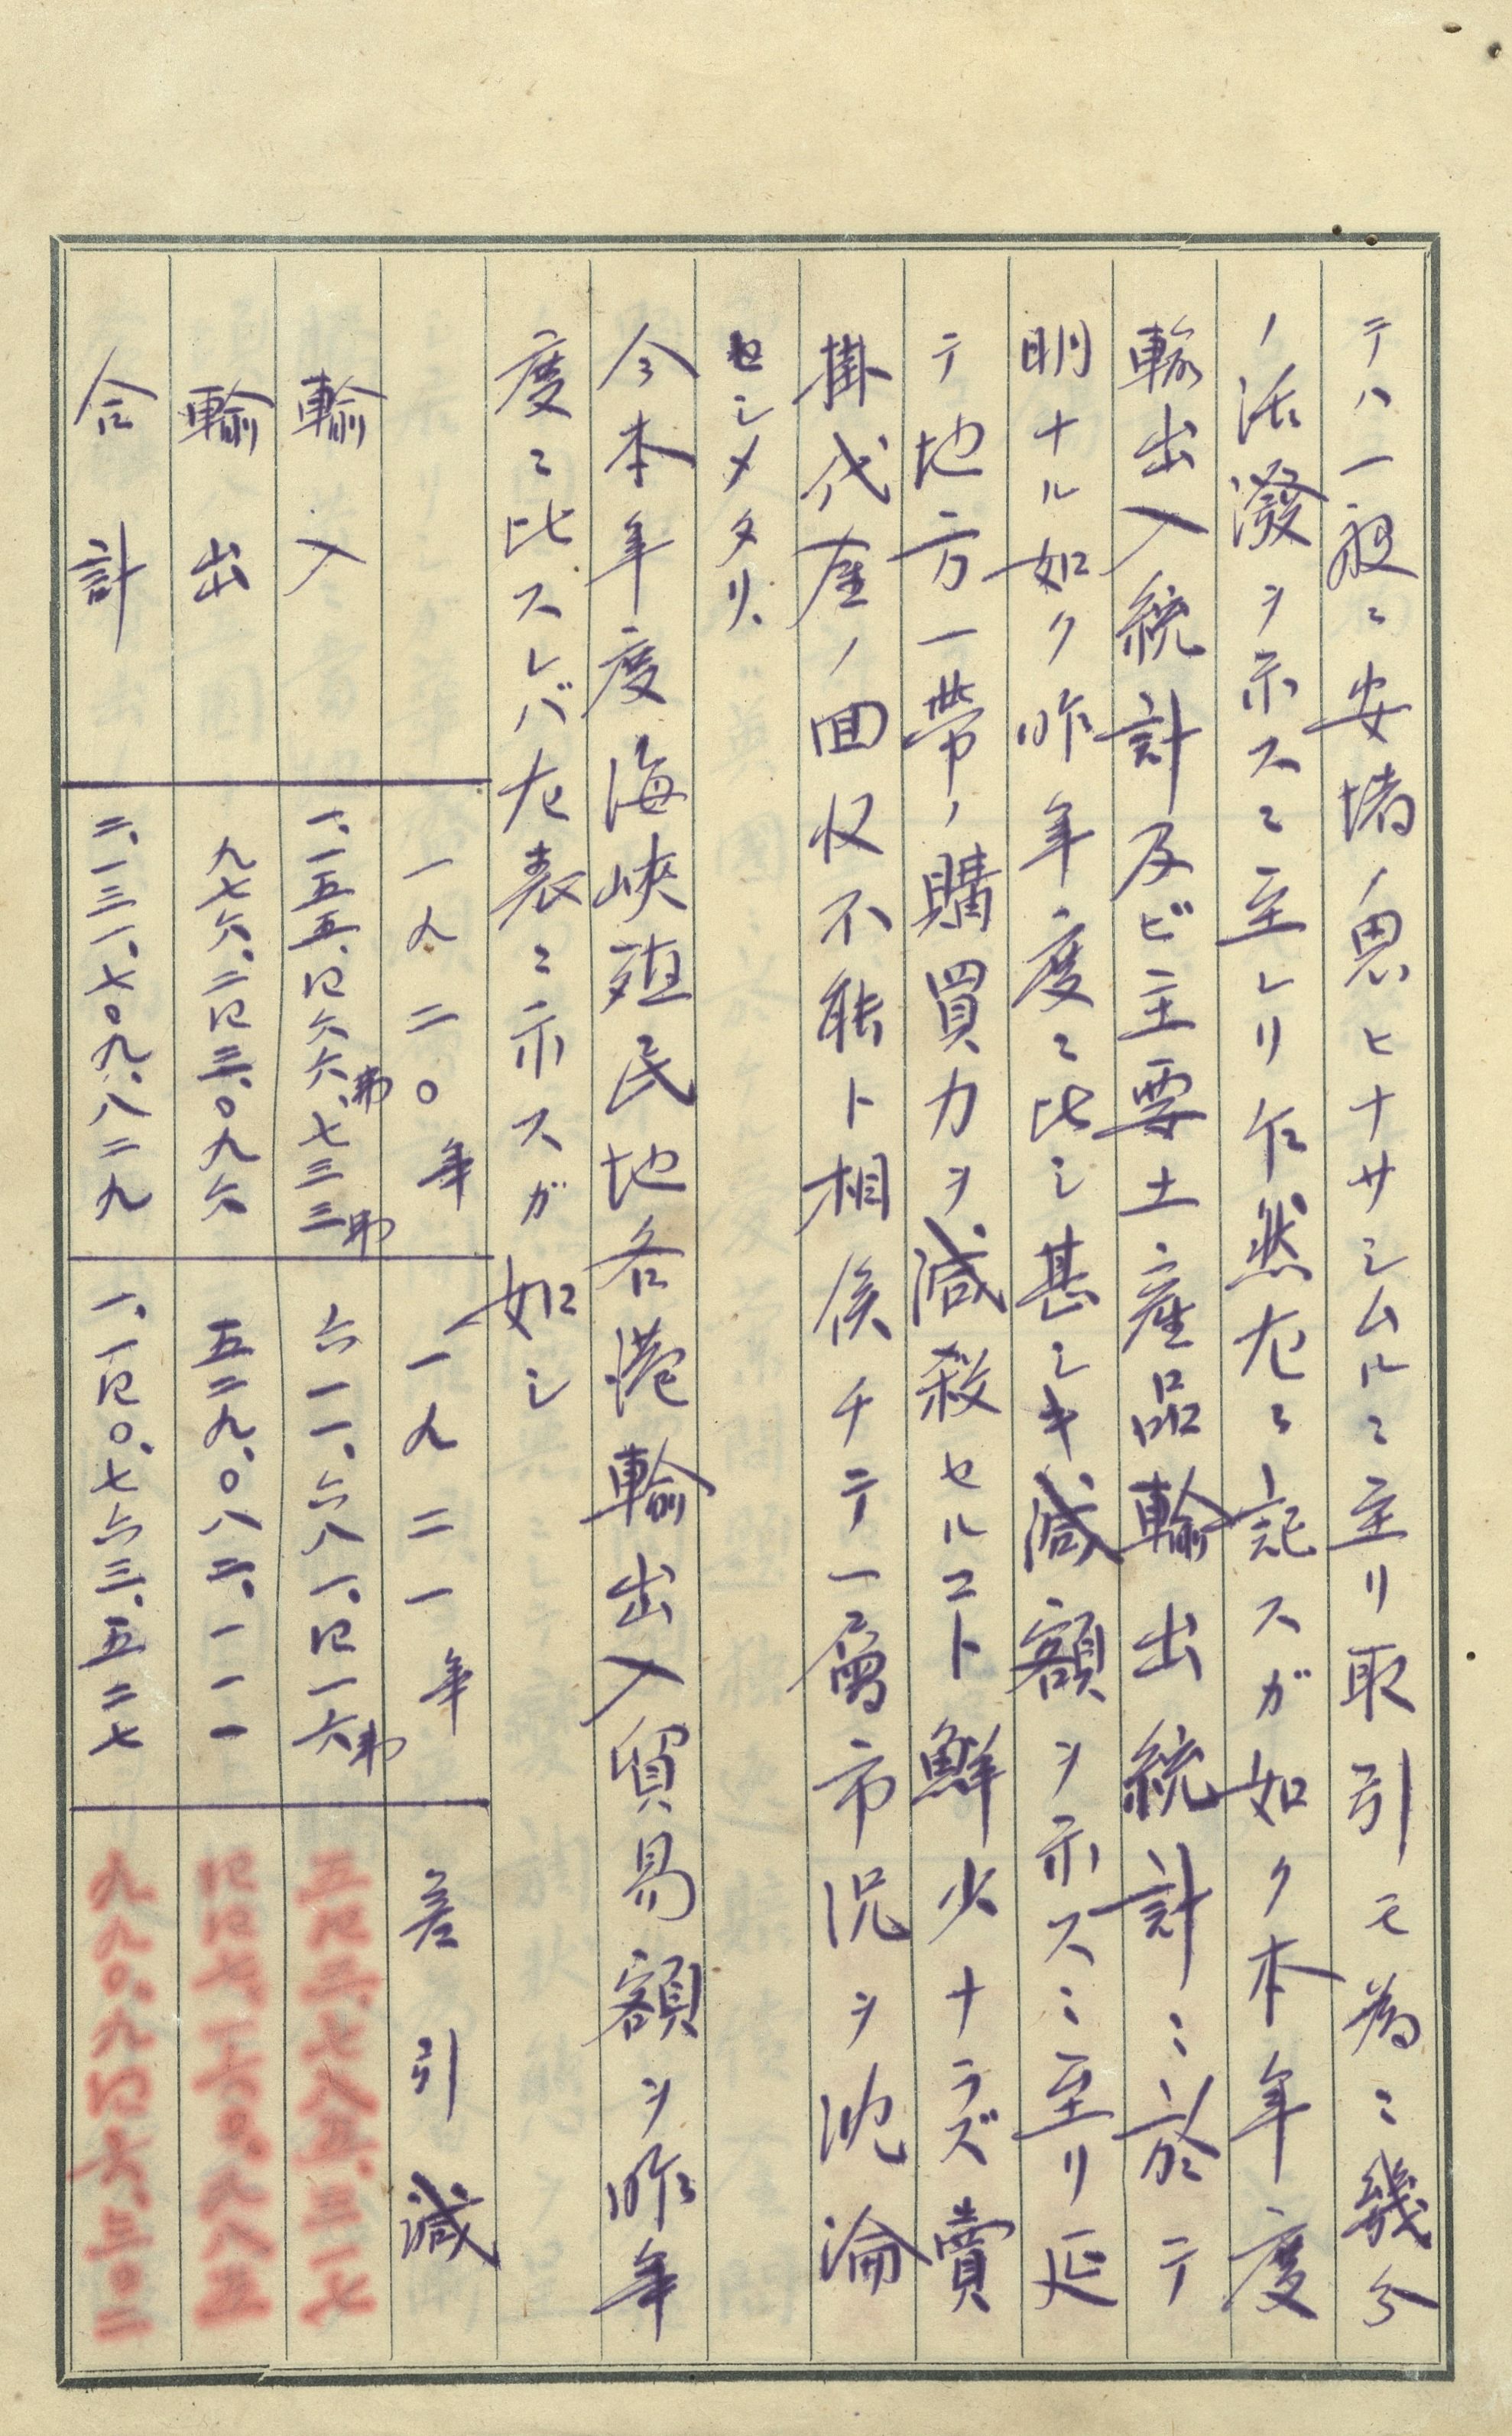 テハ一般ニ安堵ノ思ヒナサシムルニ至リ取引モ為ニ幾分
ノ活潑ヲ示スニ至レリ乍然左ニ記スガ如ク本年度
輸出入統計及ビ主要土産品輸出統計ニ於テ
明ナル如ク昨年度ニ比シ甚シキ減額ヲ示スニ至リ延
テ地方一帯ノ購買力ヲ減殺セルコト鮮少ナラズ賣
掛代金ノ回収不能ト相俟チテ一層市況ヲ沈淪
セシメタリ、
今本年度海峽殖民地各港輸出入貿易額ヲ昨年
度ニ比スレバ左表ニ示スガ如シ
一九二〇年 一九二一年 差引減
輸入 一、一五五、四六六、七三三弗 六一一、六八一、四一六弗 五四三、七八五、三一七
輸出 九七六、二四三、〇九六 五二九、〇八二、一一一 四四七、一六〇、九八五
合計 二、一三一、七〇九、八二九 一、一四〇、七六三、五二七 九九〇、九四六、三〇二